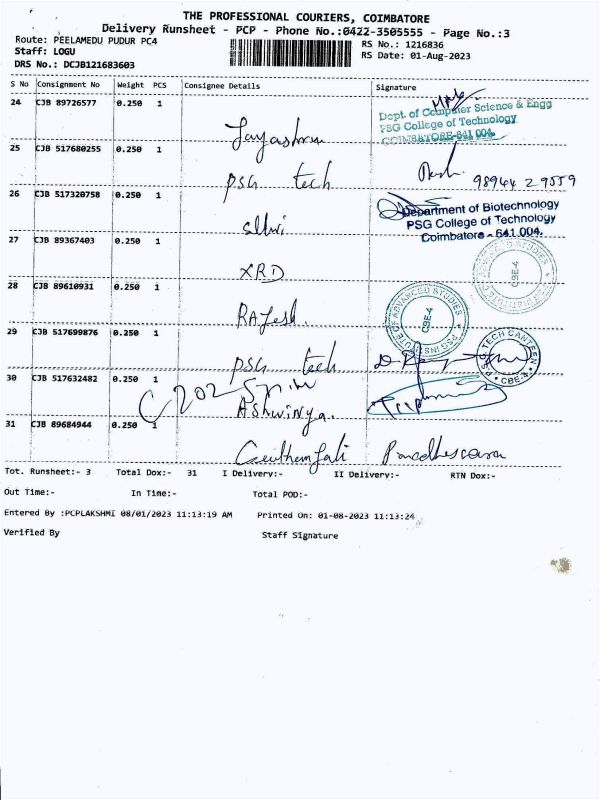 THE PROFESSIONAL COURIERS, COIMBATORE
Delivery Runsheet - PCP - Phone No.:0422-3505555 - Page No.:3
Route: PEELAMEDU PUDUR PC4
RS No.: 1216836
Staff: LOGU
RS Date: 01-Aug-2023
DRS No.: DCJB121683603
S No Consignment No Weight PCS Consignee Details Signature
24 CJB 89726577 0.250 1
Dept. of Computer Science & Engg
PSG College of Technology
COIMBATORE-641 004.
Jayashree
25 CJB 517680255 0.250 1
psg tech
98944 29559
26 CJB 517320758 0.250 1
Department of Biotechnology
PSG College of Technology
Coimbatore - 641 004.
27 CJB 89367403 0.250 1
XRD
CBE-4
28 CJB 89610931 0.250 1
Rajesh
PSG INSTITUTE OF ADVANCED STUDIES
CBE-4
29 CJB 517699876 0.250 1
psg tech
TECH CANTEEN
CBE-4
30 CJB 517632482 0.250 1
Ashwinya.
31 CJB 89684944 0.250 1
Tot. Runsheet:- 3 Total Dox:- 31 I Delivery:- II Delivery:- RTN Dox:-
Out Time:- In Time:- Total POD:-
Entered By :PCPLAKSHMI 08/01/2023 11:13:19 AM Printed On: 01-08-2023 11:13:24
Verified By Staff Signature